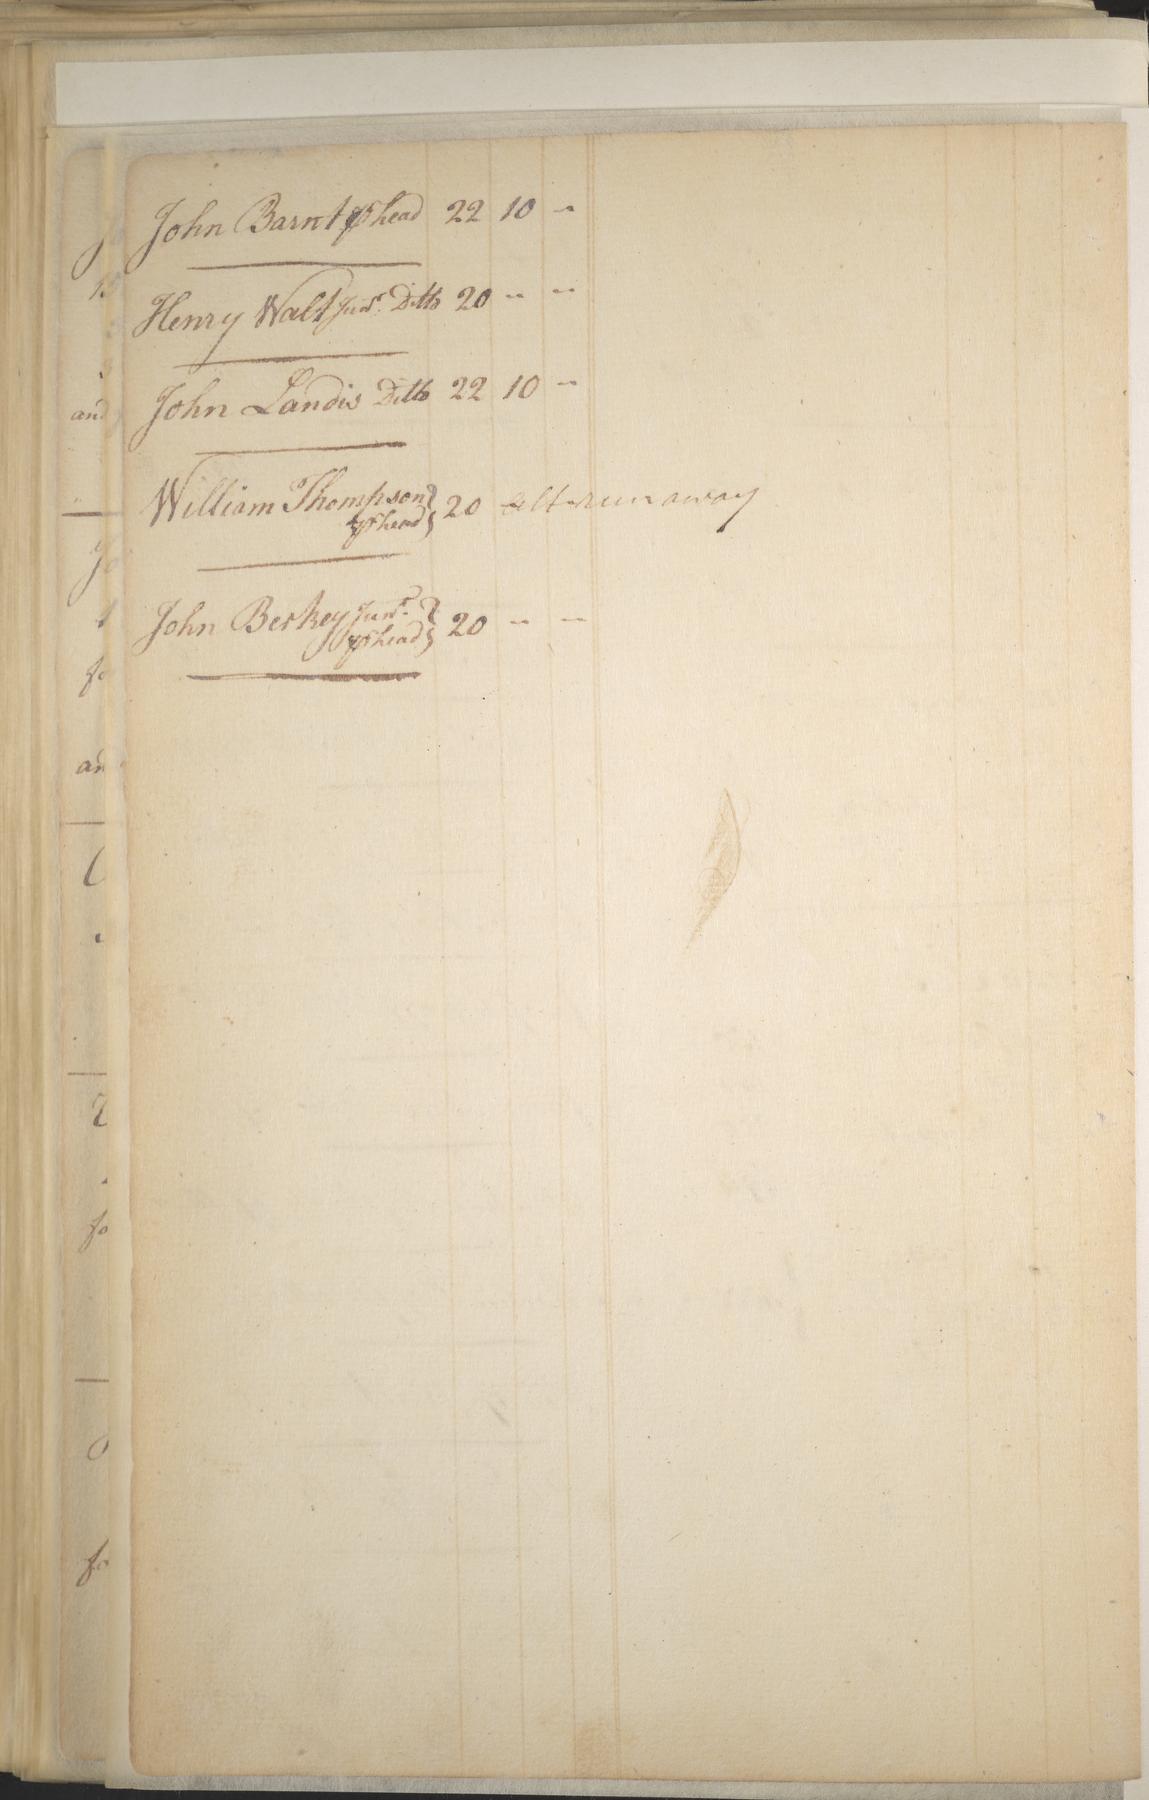 John Barnt ⅌ head 22 10 "
Henry Walt Junr. Ditto 20 " "
John Landis Ditto 22 10 "
William Thompson } 20 runaway
⅌ head
John Berkey Junr. } 20 " "
⅌ head
and